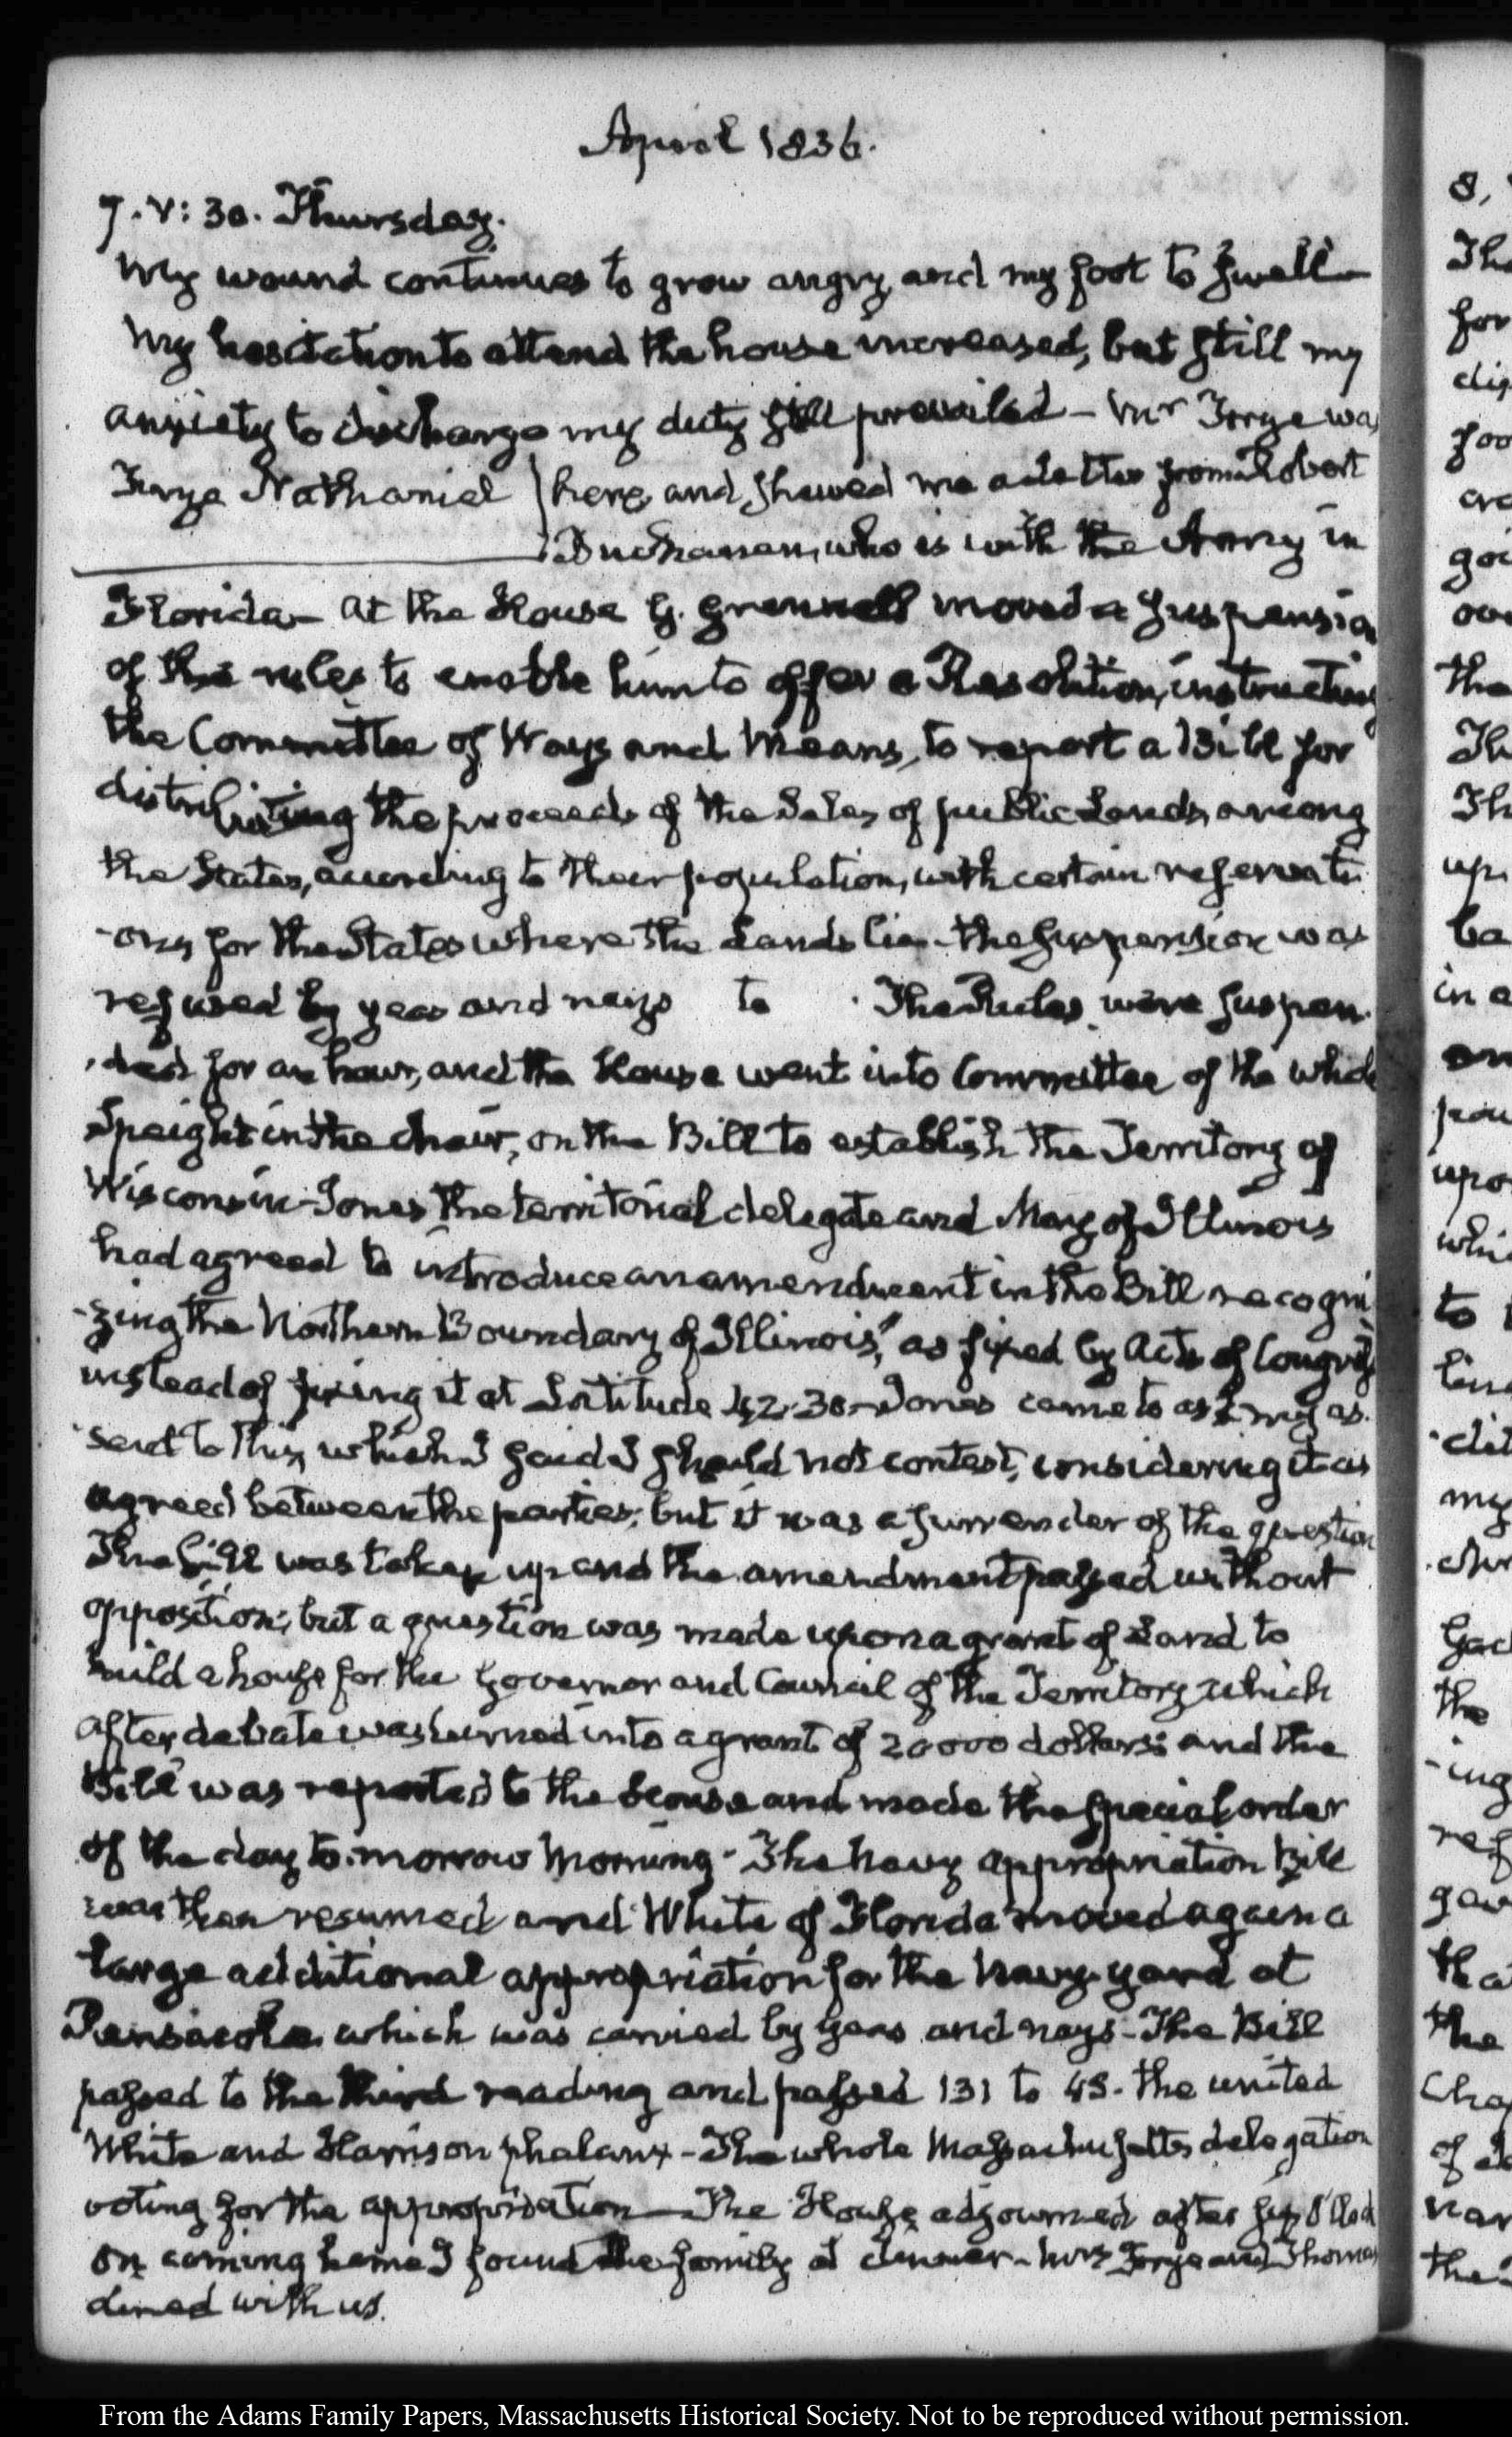 April 1836.
7. V: 30. Thursday.
My wound continues to grow angry, and my foot to swell—
My hesitation to attend the house increased, but still my
anxiety to discharge my duty still prevailed — Mr Frye was
Frye Nathaniel } here, and shewed me a letter from Robert
Buchanan, who is with the Army in
Florida — At the House G. Grennell moved a suspension
of the rules to enable him to offer a Resolution, instructing
the Committee of Ways and Means, to report a Bill for
distributing the proceeds of the Sales of public Lands, among
the States, according to their population, with certain reservati
-ons for the States where the Lands lie - the suspension was
refused by yeas and nays to . The Rules were suspen
-ded for an hour, and the House went into Committee of the whole
Speight in the chair, on the Bill to establish the Territory of
Wisconsin - Jones the territorial delegate and May of Illinois
had agreed to introduce an amendment in the Bill recogni
-zing the Northern Boundary of Illinois, "as fixed by Acts of Congress"
instead of fixing it at Latitude 42.30 - Jones came to ask my as
sent to this, which I said I should not contest, considering it as
agreed between the parties; but it was a surrender of the question
The bill was taken up and the amendment passed without
opposition; but a question was made upon a grant of Land to
build a house for the Governor and Council of the Territory which
after debate was turned into a grant of 20000 dollars; and the
Bill was reported to the house and made the special order
of the day to-morrow Morning - The Navy appropriation Bill
was then resumed and White of Florida moved again a
large additional appropriation for the Navy-yard at
Pensacola which was carried by yeas and nays - The Bill
passed to the third reading and passed 131 to 48. the united
White and Harrison phalanx - The whole Massachusetts delegation
voting for the appropriation — The House adjourned after six o'clock
on coming home I found the family at dinner - Mrs Frye and Thomas
dined with us.
From the Adams Family Papers, Massachusetts Historical Society. Not to be reproduced without permission.